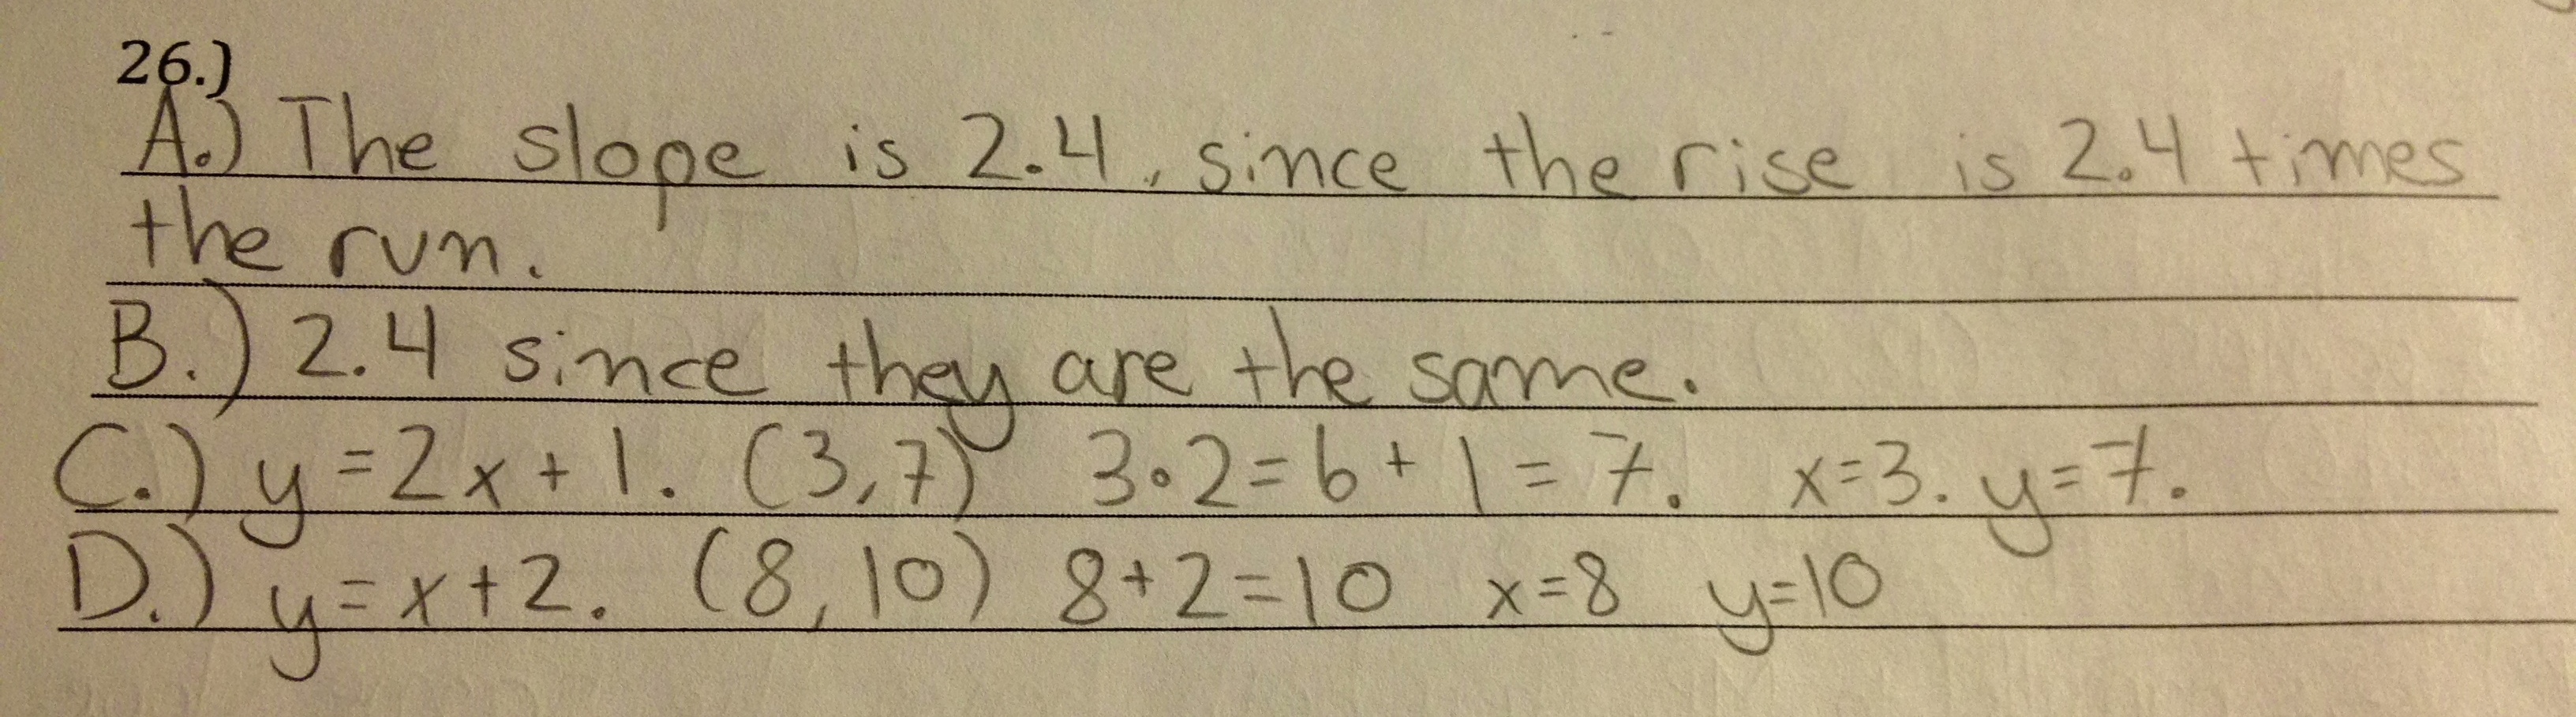 26.)
A.) The slope is 2.4, since the rise is 2.4 times
the run.
B.) 2.4 since they are the same.
C.) y=2x+1. (3,7) 3•2=6+1=7. x=3. y=7.
D.) y=x+2. (8,10) 8+2=10 x=8 y=10